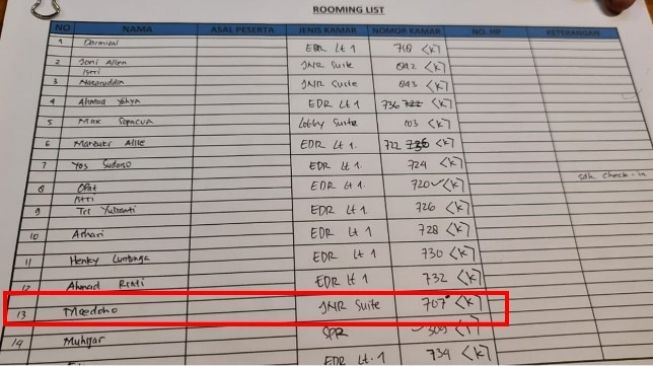 ROOMING LIST
NO NAMA ASAL PESERTA JENIS KAMAR NOMOR KAMAR NO. HP KETERANGAN
1 Darmizal EDR Lt 1 718 <K>
2 Joni Allen JNR Suite 042 <K>
Istri
3 Nazaruddin JNR Suite 043 <K>
4 Ahmad Yahya EDR Lt 1 736 722 <K>
5 Max Sopacua Lobby Suite 003 <K>
6 Marzuki Alie EDR Lt 1. 722 736 <K>
7 Yos Sudarso EDR Lt 1. 724 <K>
8 EDR Lt 1. 720 <K> sdh check-in
Istri
9 Tri Yulianti EDR Lt 1. 726 <K>
10 EDR Lt 1. 728 <K>
11 Henky EDR Lt 1 730 <K>
12 Ahmad EDR Lt 1 732 <K>
13 Moeldoko JNR Suite 707 <K>
14 SPR 309
EDR Lt. 1 734 <K>